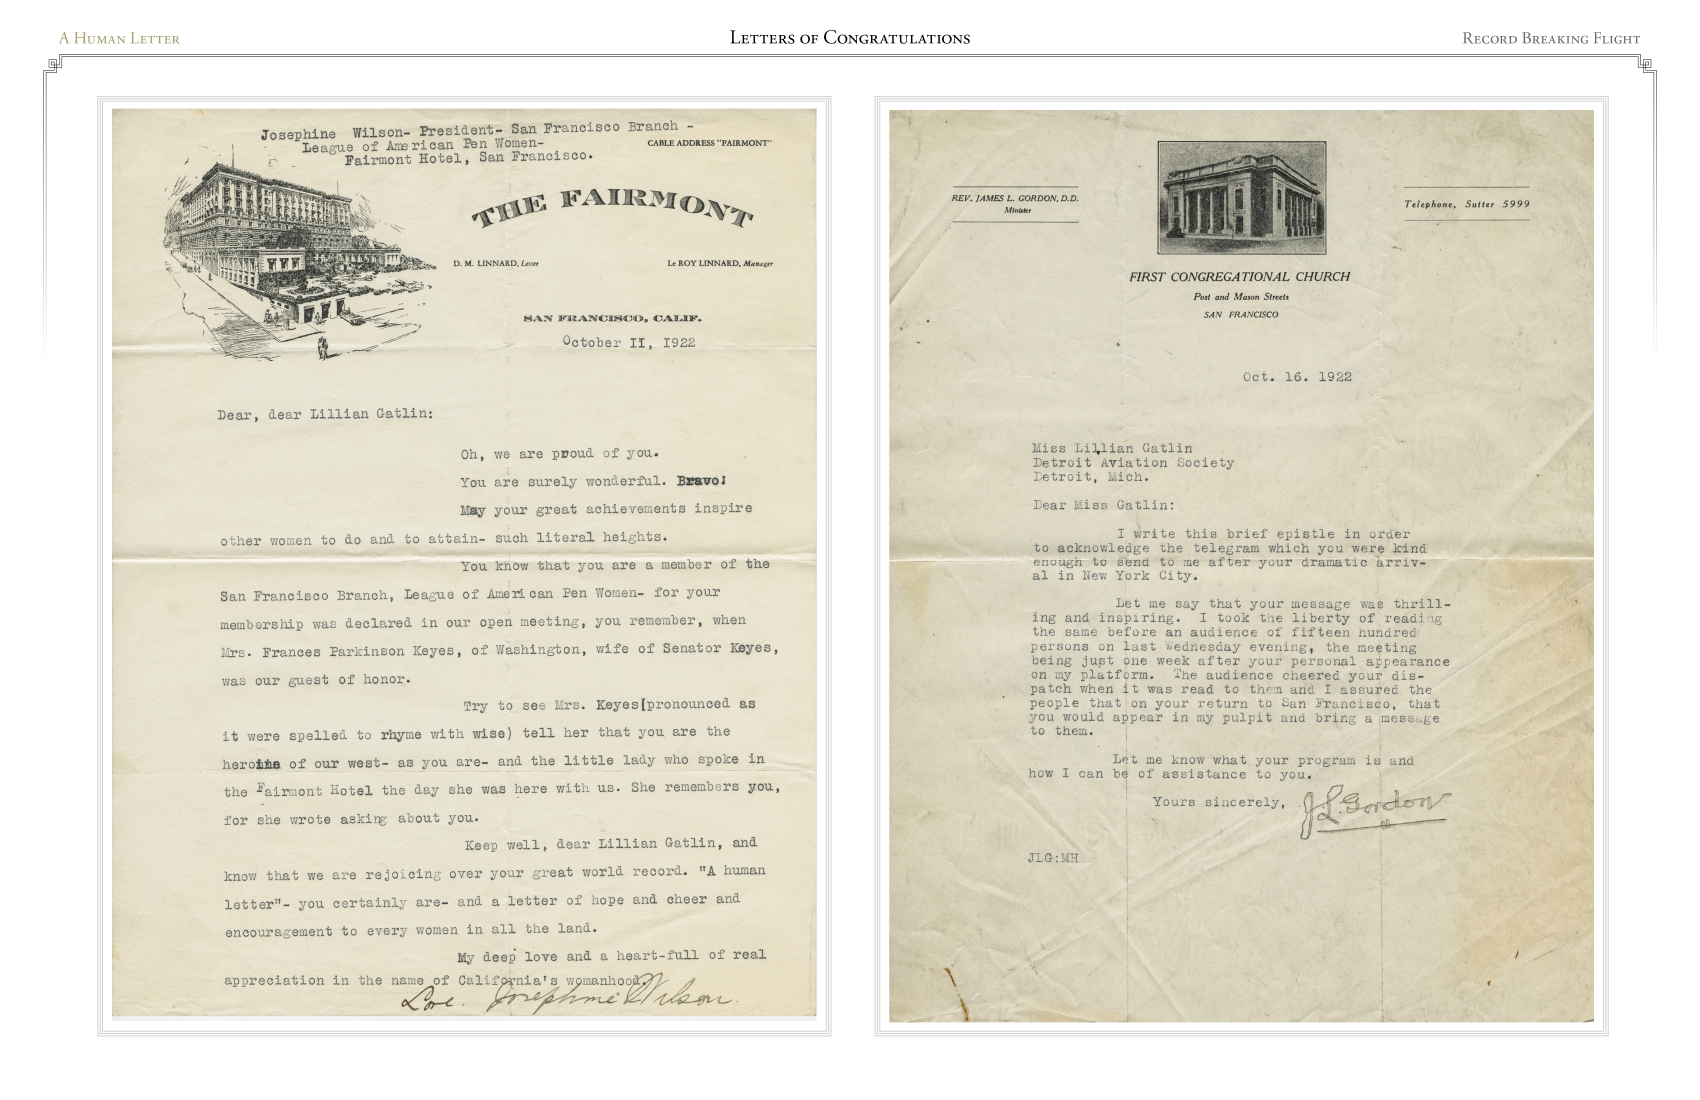 A Human Letter
Letters of Congratulations
Record Breaking Flight
Josephine Wilson- President- San Francisco Branch -
League of American Pen Women-
Fairmont Hotel, San Francisco.
CABLE ADDRESS "FAIRMONT"
THE FAIRMONT
D. M. LINNARD, Lessee
Le ROY LINNARD, Manager
SAN FRANCISCO, CALIF.
October II, I922
Dear, dear Lillian Gatlin:
Oh, we are proud of you.
You are surely wonderful. Bravo!
May your great achievements inspire
other women to do and to attain- such literal heights.
You know that you are a member of the
San Francisco Branch, League of American Pen Women- for your
membership was declared in our open meeting, you remember, when
Mrs. Frances Parkinson Keyes, of Washington, wife of Senator Keyes,
was our guest of honor.
Try to see Mrs. Keyes(pronounced as
it were spelled to rhyme with wise) tell her that you are the
heroine of our west- as you are- and the little lady who spoke in
the Fairmont Hotel the day she was here with us. She remembers you,
for she wrote asking about you.
Keep well, dear Lillian Gatlin, and
know that we are rejoicing over your great world record. "A human
letter"- you certainly are- and a letter of hope and cheer and
encouragement to every women in all the land.
My deep love and a heart-full of real
appreciation in the name of California's womanhood.
Love. Josephine Wilson.
REV. JAMES L. GORDON, D.D.
Minister
Telephone, Sutter 5999
FIRST CONGREGATIONAL CHURCH
Post and Mason Streets
SAN FRANCISCO
Oct. 16. 1922
Miss Lillian Gatlin
Detroit Aviation Society
Detroit, Mich.
Dear Miss Gatlin:
I write this brief epistle in order
to acknowledge the telegram which you were kind
enough to send to me after your dramatic arriv-
al in New York City.
Let me say that your message was thrill-
ing and inspiring. I took the liberty of reading
the same before an audience of fifteen hundred
persons on last Wednesday evening, the meeting
being just one week after your personal appearance
on my platform. The audience cheered your dis-
patch when it was read to them and I assured the
people that on your return to San Francisco, that
you would appear in my pulpit and bring a message
to them.
Let me know what your program is and
how I can be of assistance to you.
Yours sincerely, J L Gordon
JLG:MH